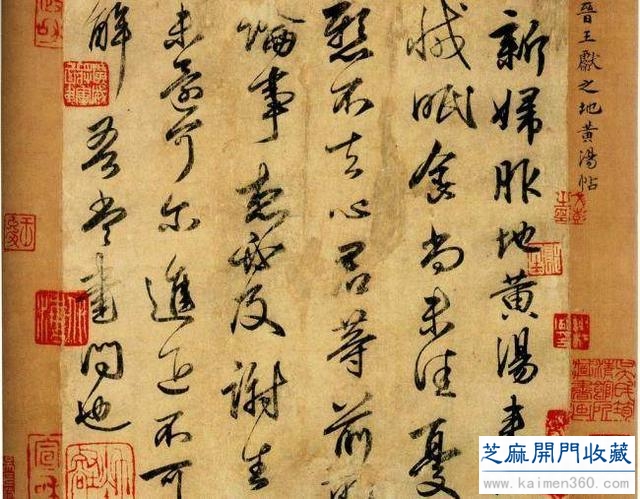 晉王獻之地黃湯帖
新婦服地黃湯來
減眠食尚未佳憂
懸不去心君等前所
論事想必及謝生
未還可爾進退不可
解吾當書問也
芝麻開門收藏
www.kaimen360.com